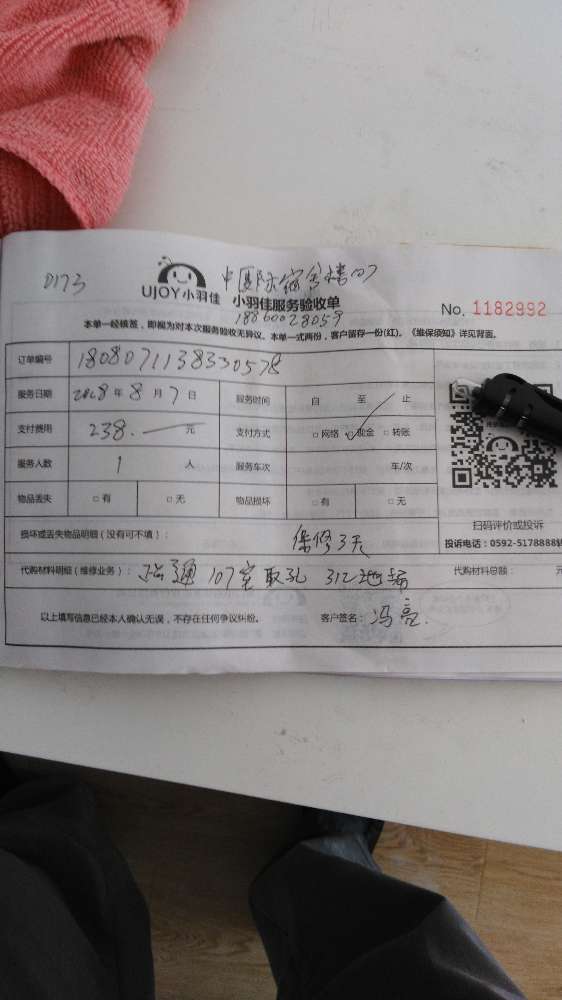 0173
UJOY小羽佳
小羽佳服务验收单
18860028059
No. 1182992
本单一经换签，即视为对本次服务验收无异议。本单一式两份，客户留存一份(红)。《维保须知》详见背面。
订单编号 1808071138330578
服务日期 2018 年 8 月 7 日 服务时间 自 至 止
支付费用 238.— 元 支付方式 □ 网络 □ 现金 □ 转账
服务人数 1 人 服务车次 车/次
物品丢失 □ 有 □ 无 物品损坏 □ 有 □ 无
扫码评价或投诉
损坏或丢失物品明细（没有可不填）： 保修3天
投诉电话：0592-5178888转
代购材料明细（维修业务）： 疏通 107室 取孔 312地漏 代购材料总额： 元
以上填写信息已经本人确认无误，不存在任何争议纠纷。 客户签名： 冯亮